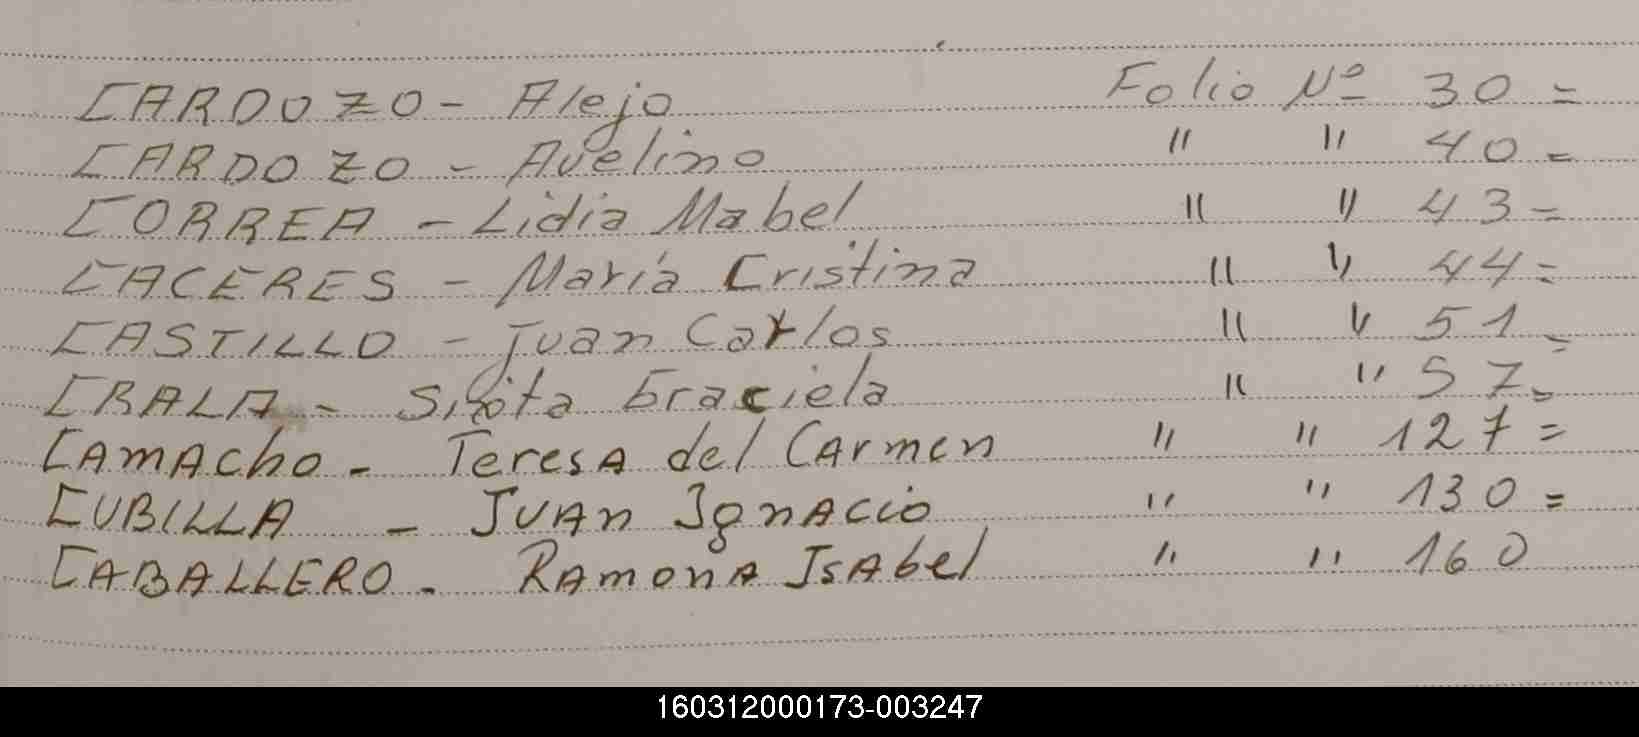 CARDOZO - Alejo Folio Nº 30 =
CARDOZO - Avelino " " 40 =
CORREA - Lidia Mabel " " 43 =
CACERES - María Cristina " " 44 =
CASTILLO - Juan Carlos " " 51 =
- Sixta Graciela " " 57 =
CAMACho - TeresA del CArmen " " 127 =
CUBILLA - JUAn IgnAcio " " 130 =
CABALLERO - RAmonA IsAbel " " 160
160312000173-003247